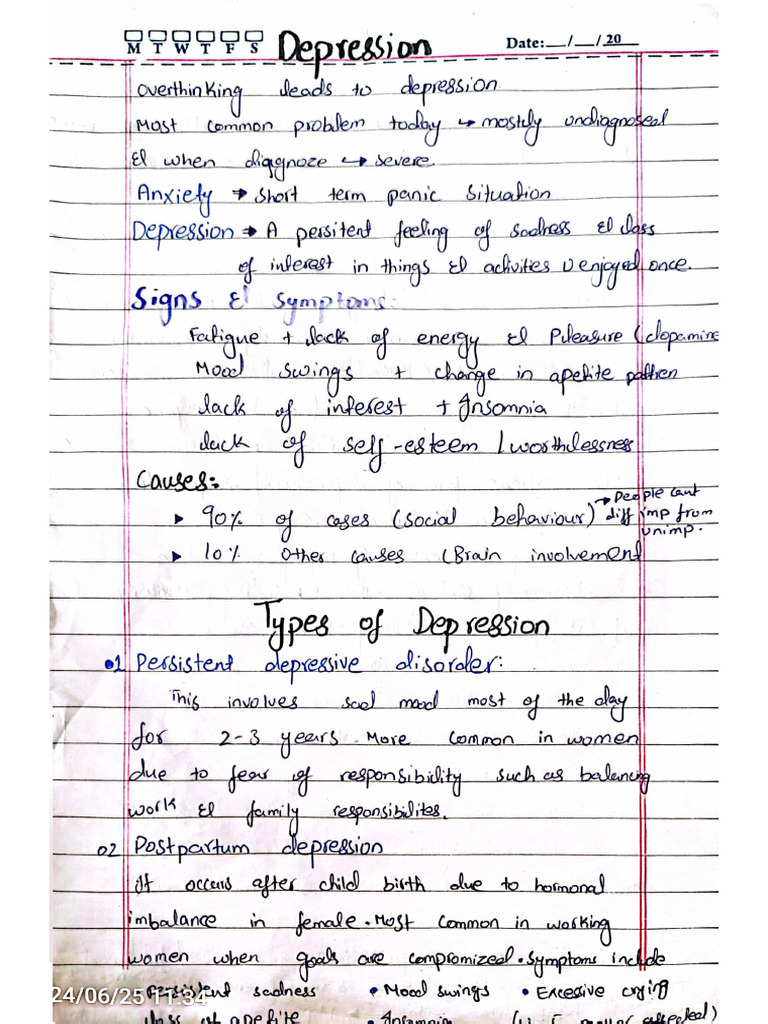 M T W T F S Depression Date:__/__/20__
overthinking leads to depression
Most common problem today ↪ mostly undiagnosed
& when diagnoze ↪ severe
Anxiety → short term panic situation
Depression → A persitent feeling of sadness & loss
of interest in things & activites u enjoyed once.
Signs & symptoms:
Fatigue + lack of energy & Pleasure (dopamine
Mood swings + change in apetite pattren
lack of interest + Insomnia
lack of self-esteem / worthlessness
Causes:
→ People cant
▸ 90% of cases (social behaviour) diff imp from
unimp.
▸ 10% other causes (Brain involvement
Types of Depression
01 Persistent depressive disorder:
This involves sad mood most of the day
for 2-3 years. More common in women
due to fear of responsibility such as balancing
work & family responsibilites.
02 Postpartum depression
It occurs after child birth due to hormonal
imbalance in female. Most common in working
women when goals are compromized. Symptoms include
24/06/25 11:34 Persistent sadness • Mood swings • Excesive crying
loss of apetite • Insomnia